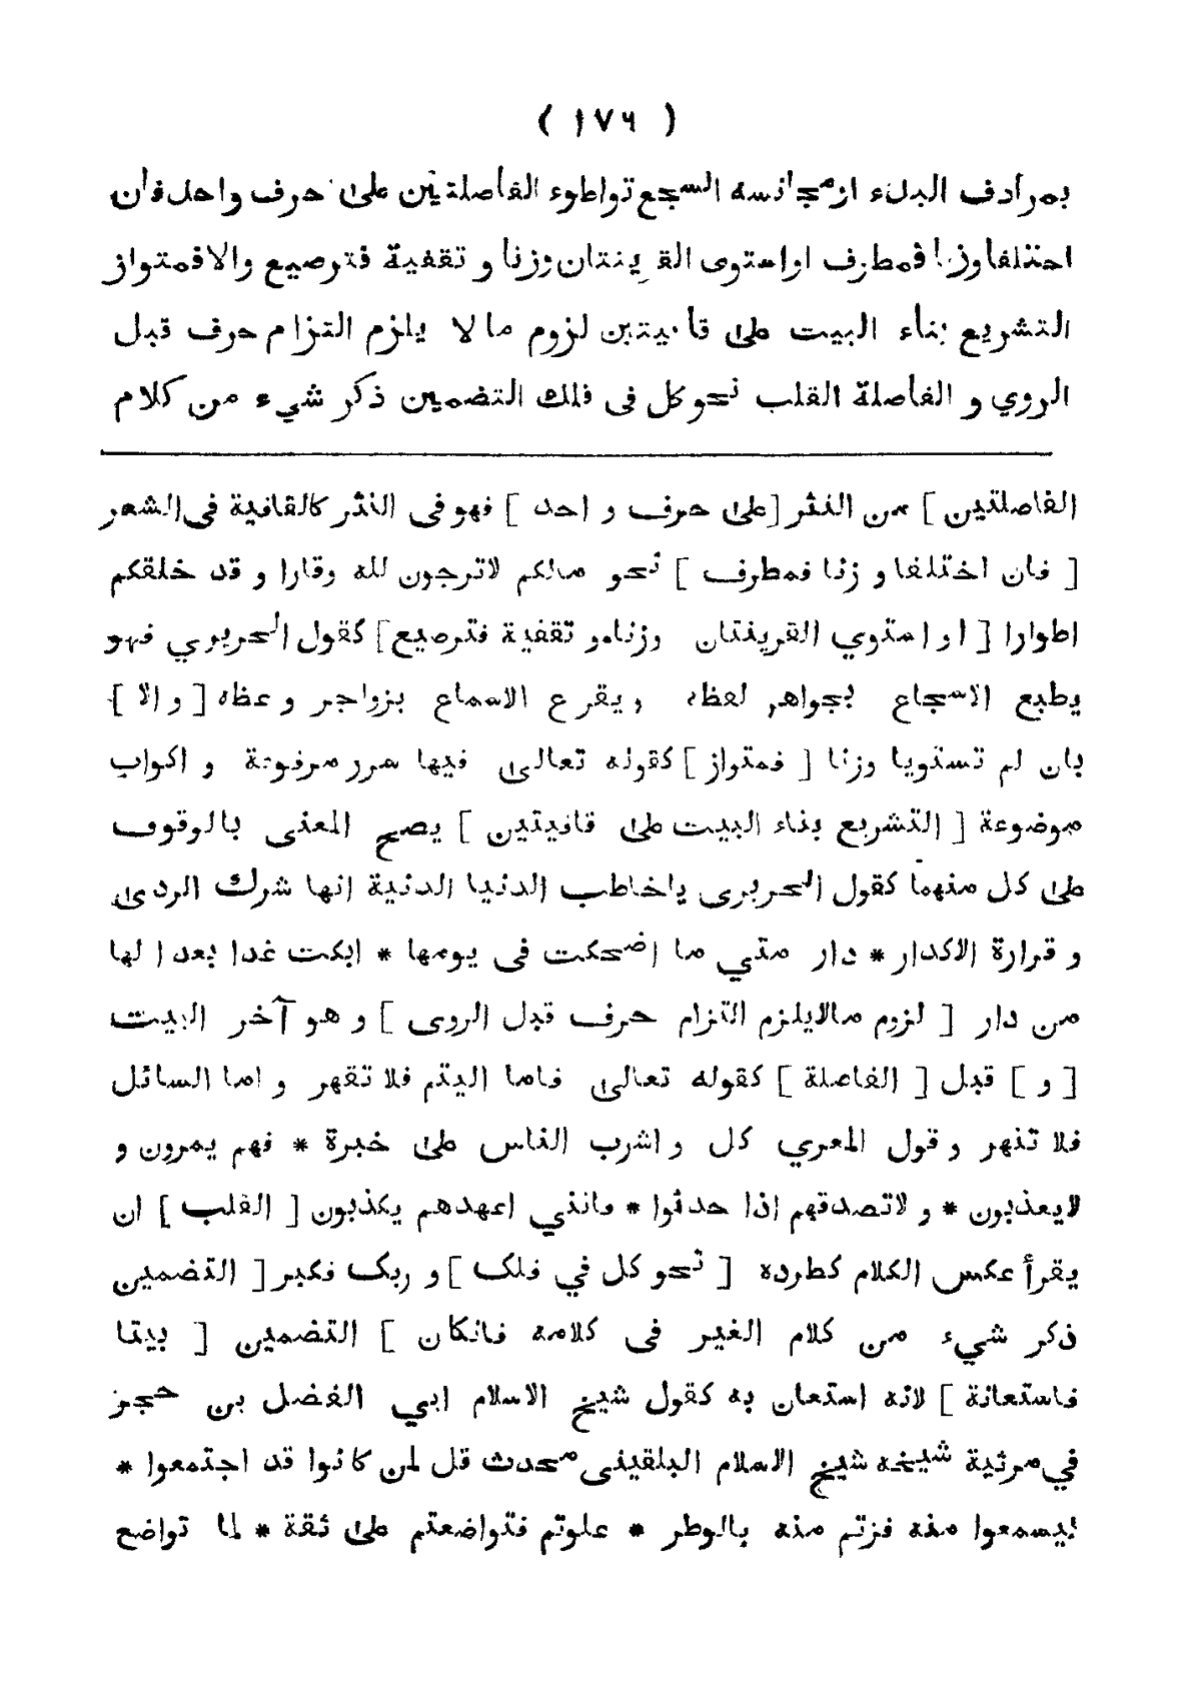 ( ١٧٦ )
بمرادف البدء او مجانسه السجع تواطوء الفاصلتين على حرف واحد فان
اختلفا وزنا فمطرف او استوى القرينتان وزنا و تقفية فترصيع والا فمتواز
التشريع بناء البيت على قافيتين لزوم ما لا يلزم التزام حرف قبل
الروي و الفاصلة القلب نحو كل فى فلك التضمين ذكر شيء من كلام
الفاصلتين ] من النثر [ على حرف و احد ] فهو فى النثر كالقافية فى الشعر
[ فان اختلفا و زنا فمطرف ] نحو مالكم لاترجون لله وقارا و قد خلقكم
اطوارا [ او استوي القرينتان وزنا و تقفية فترصيع ] كقول الحريري فهو
يطبع الاسجاع بجواهر لفظه و يقرع الاسماع بزواجر وعظه [ و الا ]
بان لم تستويا وزنا [ فمتواز ] كقوله تعالى فيها سرر مرفوعة و اكواب
موضوعة [ التشريع بناء البيت على قافيتين ] يصح المعنى بالوقوف
على كل منهما كقول الحريرى ياخاطب الدنيا الدنية انها شرك الردى
و قرارة الاكدار * دار متي ما اضحكت فى يومها * ابكت غدا بعدا لها
من دار [ لزوم مالايلزم التزام حرف قبل الروى ] و هو آخر البيت
[ و ] قبل [ الفاصلة ] كقوله تعالى فاما اليتم فلا تقهر و اما السائل
فلا تنهر و قول المعري كل و اشرب الناس على خبرة * فهم يمرون و
لايعذبون * و لاتصدقهم اذا حدثوا * فانني اعهدهم يكذبون [ القلب ] ان
يقرأ عكس الكلام كطرده [ نحو كل في فلك ] و ربك فكبر [ التضمين
ذكر شيء من كلام الغير فى كلامه فانكان ] التضمين [ بيتا
فاستعانة ] لانه استعان به كقول شيخ الاسلام ابي الفضل بن حجر
في مرثية شيخه شيخ الاسلام البلقينى محدث قل لمن كانوا قد اجتمعوا *
ليسمعوا منه فزتم منه بالوطر * علوتم فتواضعتم على ثقة * لما تواضع